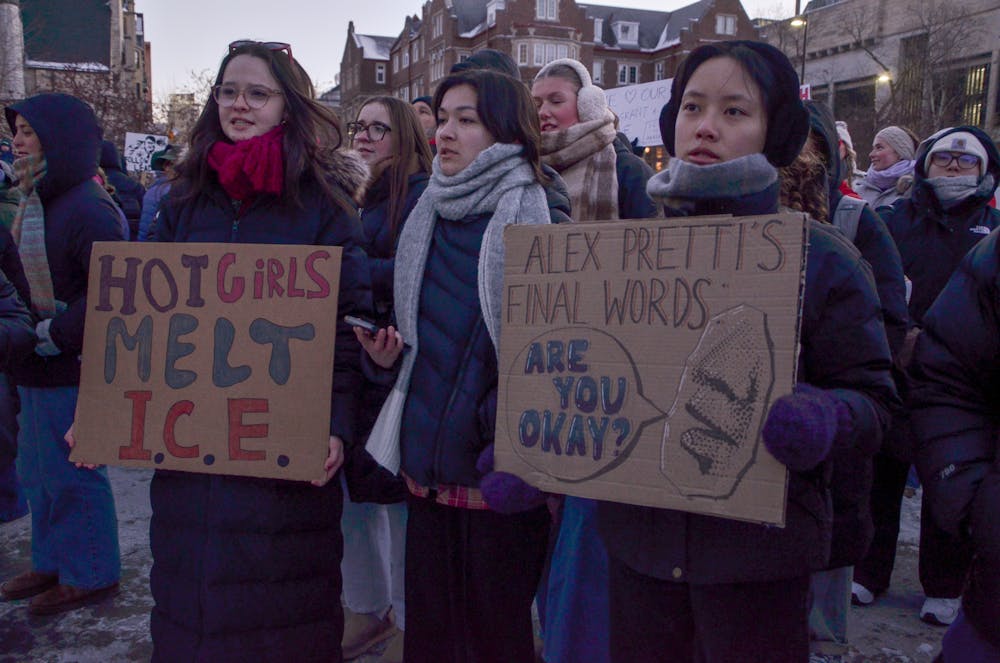 HOT GIRLS
MELT
I.C.E.
ALEX PRETTI'S
FINAL WORDS:
ARE
YOU
OKAY?
OUR